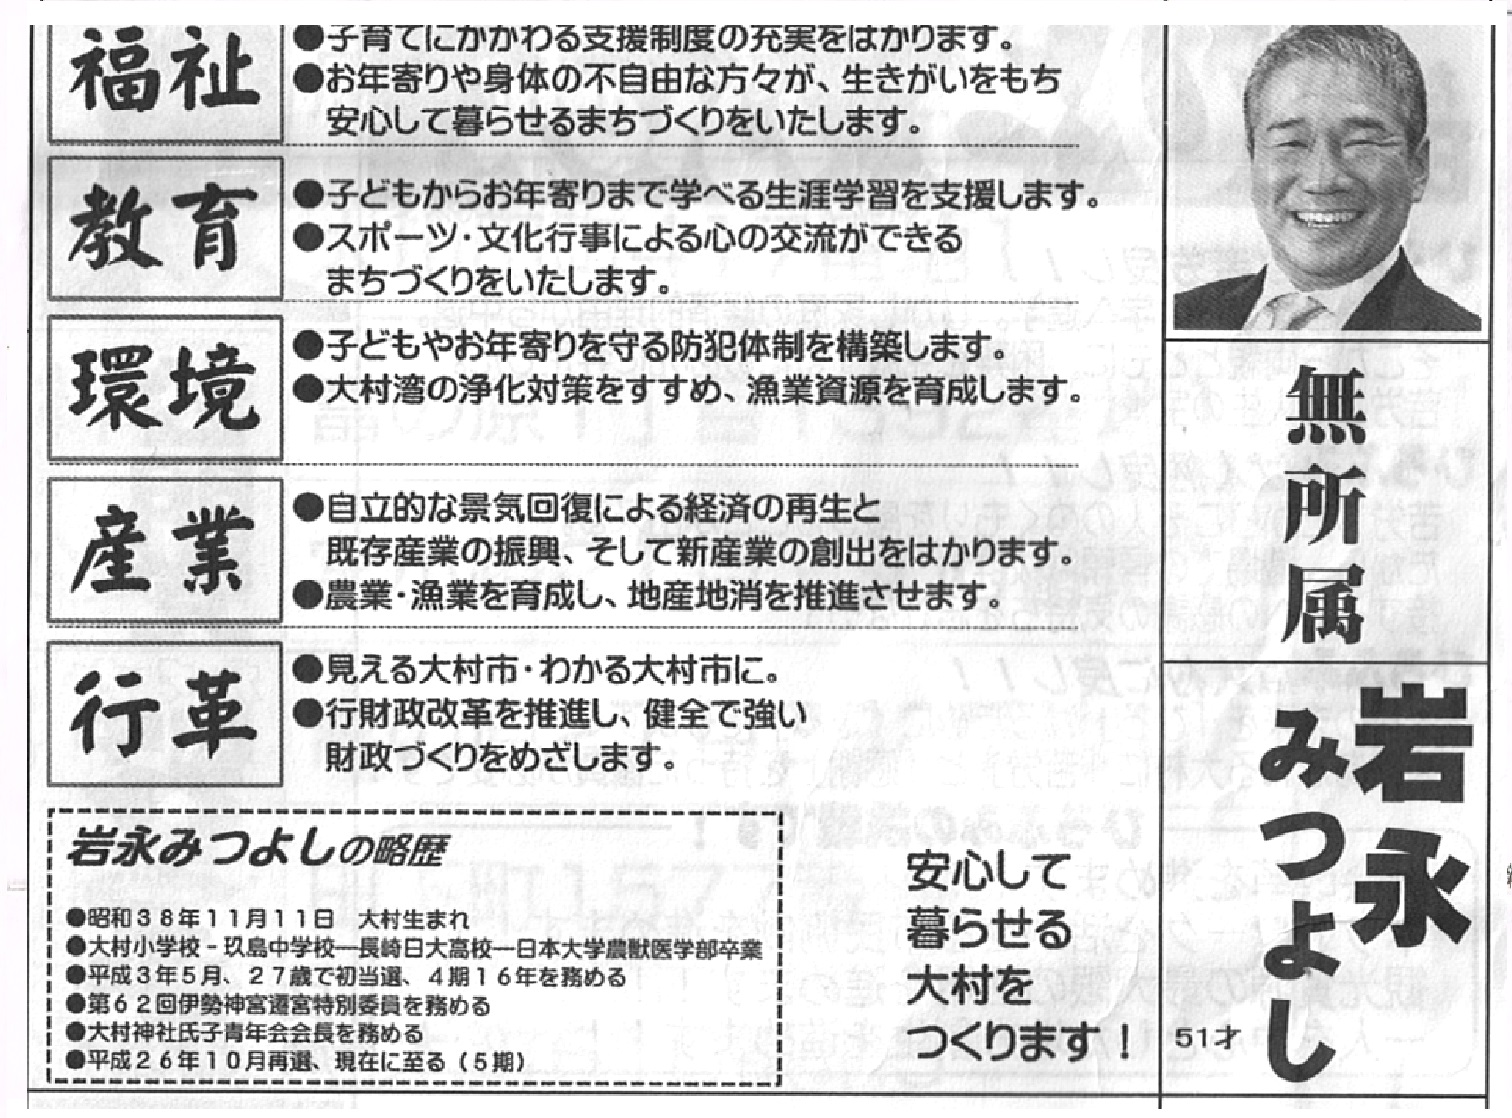 福祉
●子育てにかかわる支援制度の充実をはかります。
●お年寄りや身体の不自由な方々が、生きがいをもち
安心して暮らせるまちづくりをいたします。
教育
●子どもからお年寄りまで学べる生涯学習を支援します。
●スポーツ・文化行事による心の交流ができる
まちづくりをいたします。
環境
●子どもやお年寄りを守る防犯体制を構築します。
●大村湾の浄化対策をすすめ、漁業資源を育成します。
産業
●自立的な景気回復による経済の再生と
既存産業の振興、そして新産業の創出をはかります。
●農業・漁業を育成し、地産地消を推進させます。
行革
●見える大村市・わかる大村市に。
●行財政改革を推進し、健全で強い
財政づくりをめざします。
岩永みつよしの略歴
●昭和38年11月11日　大村生まれ
●大村小学校－玖島中学校―長崎日大高校―日本大学農獣医学部卒業
●平成3年5月、27歳で初当選、4期16年を務める
●第62回伊勢神宮遷宮特別委員を務める
●大村神社氏子青年会会長を務める
●平成26年10月再選、現在に至る（5期）
安心して
暮らせる
大村を
つくります！
無所属
岩永
みつよし
51才